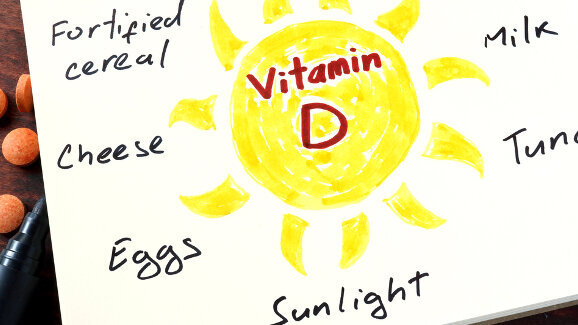 Fortified
cereal
Vitamin
D
Milk
Cheese
Tuna
Eggs
Sunlight